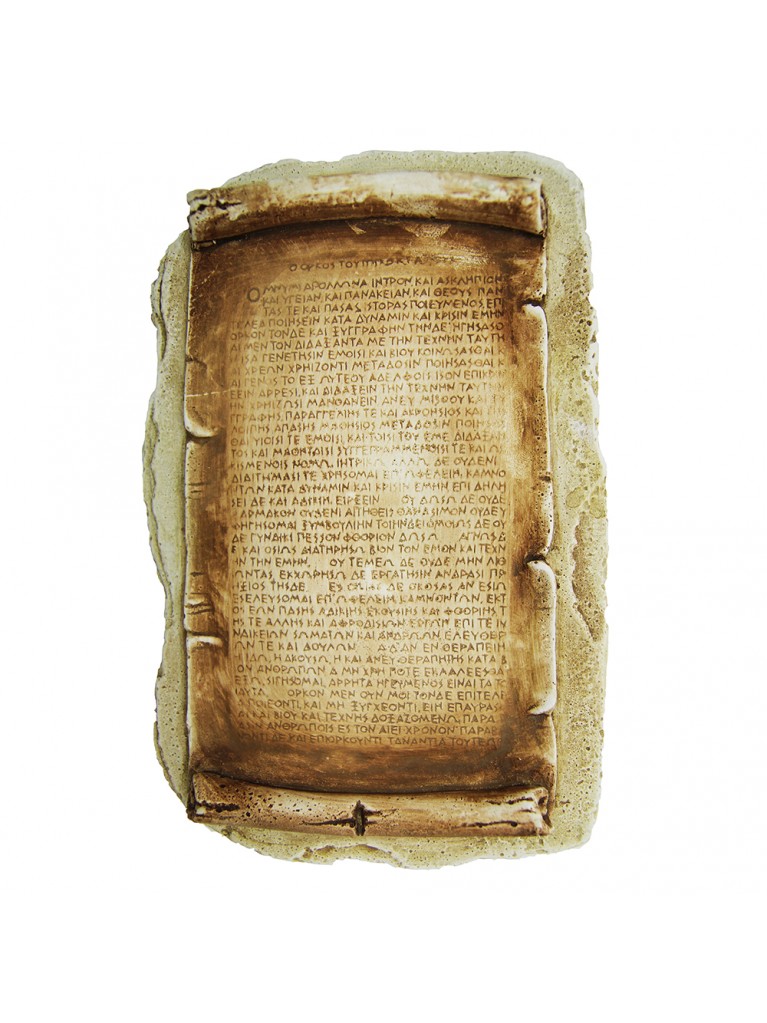 Ο ΟΡΚΟΣ ΤΟΥ
ΟΜΝΥΜΙ ΑΠΟΛΛΩΝΑ ΙΗΤΡΟΝ ΚΑΙ ΑΣΚΛΗΠΙΟΝ
ΚΑΙ ΥΓΕΙΑΝ, ΚΑΙ ΠΑΝΑΚΕΙΑΝ, ΚΑΙ ΘΕΟΥΣ ΠΑΝ
ΤΑΣ ΤΕ ΚΑΙ ΠΑΣΑΣ, ΙΣΤΟΡΑΣ ΠΟΙΕΥΜΕΝΟΣ, ΕΠ
ΤΕΛΕΑ ΠΟΙΗΣΕΙΝ ΚΑΤΑ ΔΥΝΑΜΙΝ ΚΑΙ ΚΡΙΣΙΝ ΕΜΗΝ
ΟΡΚΟΝ ΤΟΝΔΕ ΚΑΙ ΞΥΓΓΡΑΦΗΝ ΤΗΝΔΕ. ΗΓΗΣΑΣΟ
ΑΙ ΜΕΝ ΤΟΝ ΔΙΔΑΞΑΝΤΑ ΜΕ ΤΗΝ ΤΕΧΝΗΝ ΤΑΥΤΗ
ΙΣΑ ΓΕΝΕΤΗΣΙΝ ΕΜΟΙΣΙ ΚΑΙ ΒΙΟΥ ΚΟΙΝΩΣΑΣΘΑΙ
ΧΡΕΩΝ ΧΡΗΙΖΟΝΤΙ ΜΕΤΑΔΟΣΙΝ ΠΟΙΗΣΑΣΘΑΙ Κ
ΑΙ ΓΕΝΟΣ ΤΟ ΕΞ ΑΔΕΛΦΟΙΣ ΙΣΟΝ ΕΠΙΚΡ
ΕΕΙΝ ΑΡΡΕΣΙ, ΚΑΙ ΔΙΔΑΞΕΙΝ ΤΗΝ ΤΕΧΝΗΝ ΤΑΥΤΗΝ
ΗΝ ΧΡΗΙΖΩΣΙ ΜΑΝΘΑΝΕΙΝ ΑΝΕΥ ΜΙΣΘΟΥ ΚΑΙ
ΓΓΡΑΦΗΣ, ΠΑΡΑΓΓΕΛΙΗΣ ΤΕ ΚΑΙ ΑΚΡΟΗΣΙΟΣ ΚΑΙ
ΛΟΙΠΗΣ ΑΠΑΣΗΣ ΜΑΘΗΣΙΟΣ ΜΕΤΑΔΟΣΙΝ ΠΟΙΗΣ
ΘΑΙ ΥΙΟΙΣΙ ΤΕ ΕΜΟΙΣΙ, ΚΑΙ ΤΟΙΣΙ ΤΟΥ ΕΜΕ ΔΙΔΑΞΑΝ
ΤΟΣ ΚΑΙ ΜΑΘΗΤΑΙΣΙ ΣΥΓΓΕΓΡΑΜΜΕΝΟΙΣΙ ΤΕ ΚΑΙ ΩΡ
ΚΙΣΜΕΝΟΙΣ ΝΟΜΩ ΙΗΤΡΙΚΩ, ΑΛΛΩ ΔΕ ΟΥΔΕΝΙ.
ΔΙΑΙΤΗΜΑΣΙ ΤΕ ΧΡΗΣΟΜΑΙ ΕΠ ΩΦΕΛΕΙΗ ΚΑΜΝΟ
ΝΤΩΝ ΚΑΤΑ ΔΥΝΑΜΙΝ ΚΑΙ ΚΡΙΣΙΝ ΕΜΗΝ ΕΠΙ ΔΗΛΗ
ΣΕΙ ΔΕ ΚΑΙ ΑΔΙΚΙΗ, ΕΙΡΞΕΙΝ ΟΥ ΔΩΣΩ ΔΕ ΟΥΔΕ
ΦΑΡΜΑΚΟΝ ΟΥΔΕΝΙ ΑΙΤΗΘΕΙΣ ΘΑΝΑΣΙΜΟΝ ΟΥΔΕ Υ
ΦΗΓΗΣΟΜΑΙ ΞΥΜΒΟΥΛΙΗΝ ΤΟΙΗΝΔΕ ΟΜΟΙΩΣ ΔΕ ΟΥ
ΔΕ ΓΥΝΑΙΚΙ ΠΕΣΣΟΝ ΦΘΟΡΙΟΝ ΔΩΣΩ ΑΓΝΩΣ Δ
Ε ΚΑΙ ΟΣΙΩΣ ΔΙΑΤΗΡΗΣΩ ΒΙΟΝ ΤΟΝ ΕΜΟΝ ΚΑΙ ΤΕΧΝ
ΙΝ ΤΗΝ ΕΜΗΝ. ΟΥ ΤΕΜΕΩ ΔΕ ΟΥΔΕ ΜΗΝ ΛΙΘΙ
ΩΝΤΑΣ, ΕΚΧΩΡΗΣΩ ΔΕ ΕΡΓΑΤΗΣΙΝ ΑΝΔΡΑΣΙ ΠΡ
ΗΞΙΟΣ ΤΗΣΔΕ. ΕΣ ΟΙΚΙΑΣ ΔΕ ΟΚΟΣΑΣ ΑΝ ΕΣΙΩ
ΕΣΕΛΕΥΣΟΜΑΙ ΕΠ ΩΦΕΛΕΙΗ ΚΑΜΝΟΝΤΩΝ, ΕΚΤ
ΟΣ ΕΩΝ ΠΑΣΗΣ ΑΔΙΚΙΗΣ ΕΚΟΥΣΙΗΣ ΚΑΙ ΦΘΟΡΙΗΣ, Τ
ΗΣ ΤΕ ΑΛΛΗΣ ΚΑΙ ΑΦΡΟΔΙΣΙΩΝ ΕΡΓΩΝ ΕΠΙ ΤΕ ΓΥ
ΝΑΙΚΕΙΩΝ ΣΩΜΑΤΩΝ ΚΑΙ ΑΝΔΡΩΩΝ, ΕΛΕΥΘΕΡ
ΩΝ ΤΕ ΚΑΙ ΔΟΥΛΩΝ. Α Δ ΑΝ ΕΝ ΘΕΡΑΠΕΙΗ
Η ΙΔΩ, Η ΑΚΟΥΣΩ, Η ΚΑΙ ΑΝΕΥ ΘΕΡΑΠΗΙΗΣ ΚΑΤΑ Β
ΙΟΝ ΑΝΘΡΩΠΩΝ, Α ΜΗ ΧΡΗ ΠΟΤΕ ΕΚΛΑΛΕΕΣΘΑΙ
ΕΞΩ, ΣΙΓΗΣΟΜΑΙ, ΑΡΡΗΤΑ ΗΓΕΥΜΕΝΟΣ ΕΙΝΑΙ ΤΑ ΤΟ
ΙΑΥΤΑ. ΟΡΚΟΝ ΜΕΝ ΟΥΝ ΜΟΙ ΤΟΝΔΕ ΕΠΙΤΕΛΕ
Α ΠΟΙΕΟΝΤΙ, ΚΑΙ ΜΗ ΞΥΓΧΕΟΝΤΙ, ΕΙΗ ΕΠΑΥΡΑΣ
ΘΑΙ ΚΑΙ ΒΙΟΥ ΚΑΙ ΤΕΧΝΗΣ ΔΟΞΑΖΟΜΕΝΩ, ΠΑΡΑ
ΠΑΣΙΝ ΑΝΘΡΩΠΟΙΣ ΕΣ ΤΟΝ ΑΙΕΙ ΧΡΟΝΟΝ ΠΑΡΑΒ
ΝΤΙ ΔΕ ΚΑΙ ΕΠΙΟΡΚΟΥΝΤΙ, ΤΑΝΑΝΤΙΑ ΤΟΥΤΕΩΝ